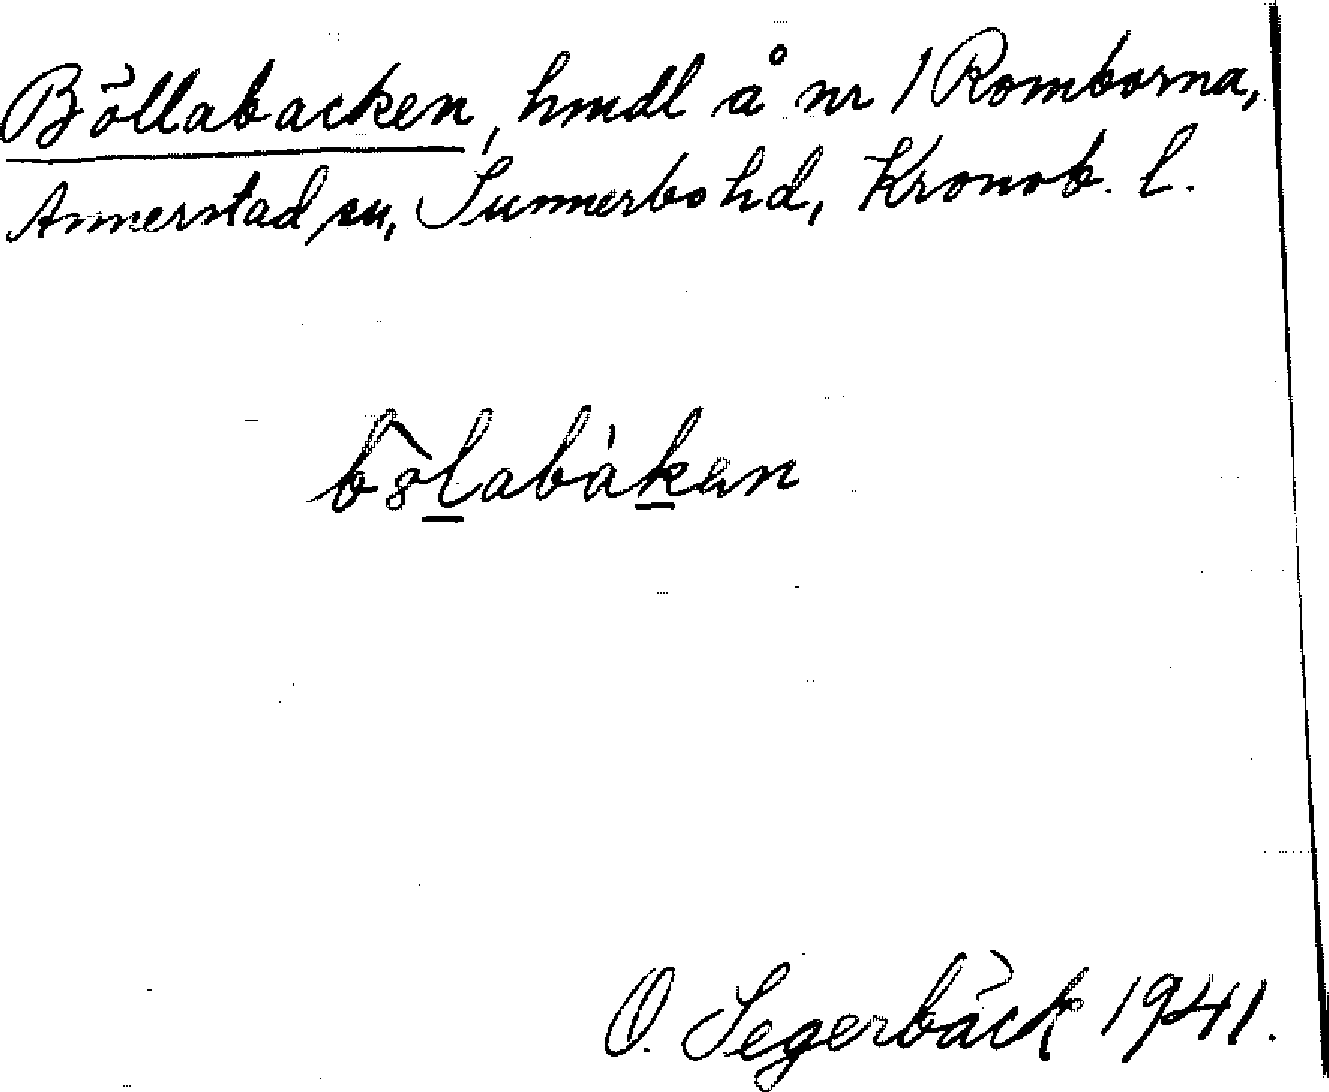 Böllabacken, hmdl å nr 1 Romborna,
Annerstad sn, Sunnerbo hd, Kronob. l.
bölabàkən
O. Segerbäck 1941.